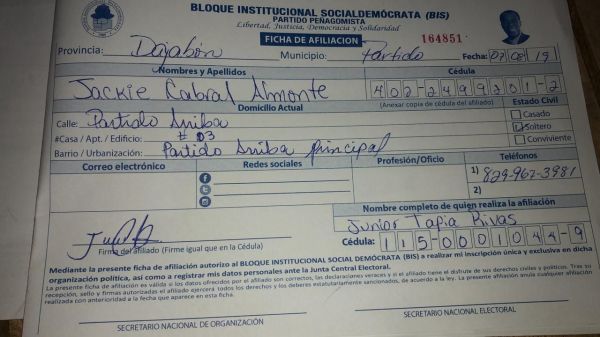 BLOQUE INSTITUCIONAL SOCIALDEMÓCRATA (BIS)
PARTIDO PEÑAGOMISTA
Libertad, Justicia, Democracia y Solidaridad
FICHA DE AFILIACION 164851
Provincia: Dajabón Municipio: Partido Fecha: 07/08/19
Nombres y Apellidos Cédula
Jackie Cabral Almonte 402-2499201-2
Domicilio Actual (Anexar copia de cédula del afiliado) Estado Civil
Calle: Partido Arriba Casado
#Casa / Apt. / Edificio: # 03 Soltero
Barrio / Urbanización: Partido Arriba Principal Conviviente
Correo electrónico Redes sociales Profesión/Oficio Teléfonos
1) 829-962-3981
2)
Nombre completo de quien realiza la afiliación
Junior Tapia Rivas
Firma del afiliado (Firme igual que en la Cédula) Cédula: 115-0001044-9
Mediante la presente ficha de afiliación autorizo al BLOQUE INSTITUCIONAL SOCIAL DEMÓCRATA (BIS) a realizar mi inscripción única y exclusiva en dicha
organización política, así como a registrar mis datos personales ante la Junta Central Electoral.
La presente ficha de afiliación es válida si los datos ofrecidos por el afiliado son correctos, las declaraciones veraces y si el afiliado tiene el disfrute de sus derechos civiles y políticos. Tras su
recepción, sello y firmas autorizadas el afiliado ejercerá todos los derechos y los deberes estatutariamente sancionados, de acuerdo a la ley. La presente afiliación anula cualquier afiliación
realizada con anterioridad a la fecha que aparece en esta ficha.
SECRETARIO NACIONAL DE ORGANIZACIÓN SECRETARIO NACIONAL ELECTORAL